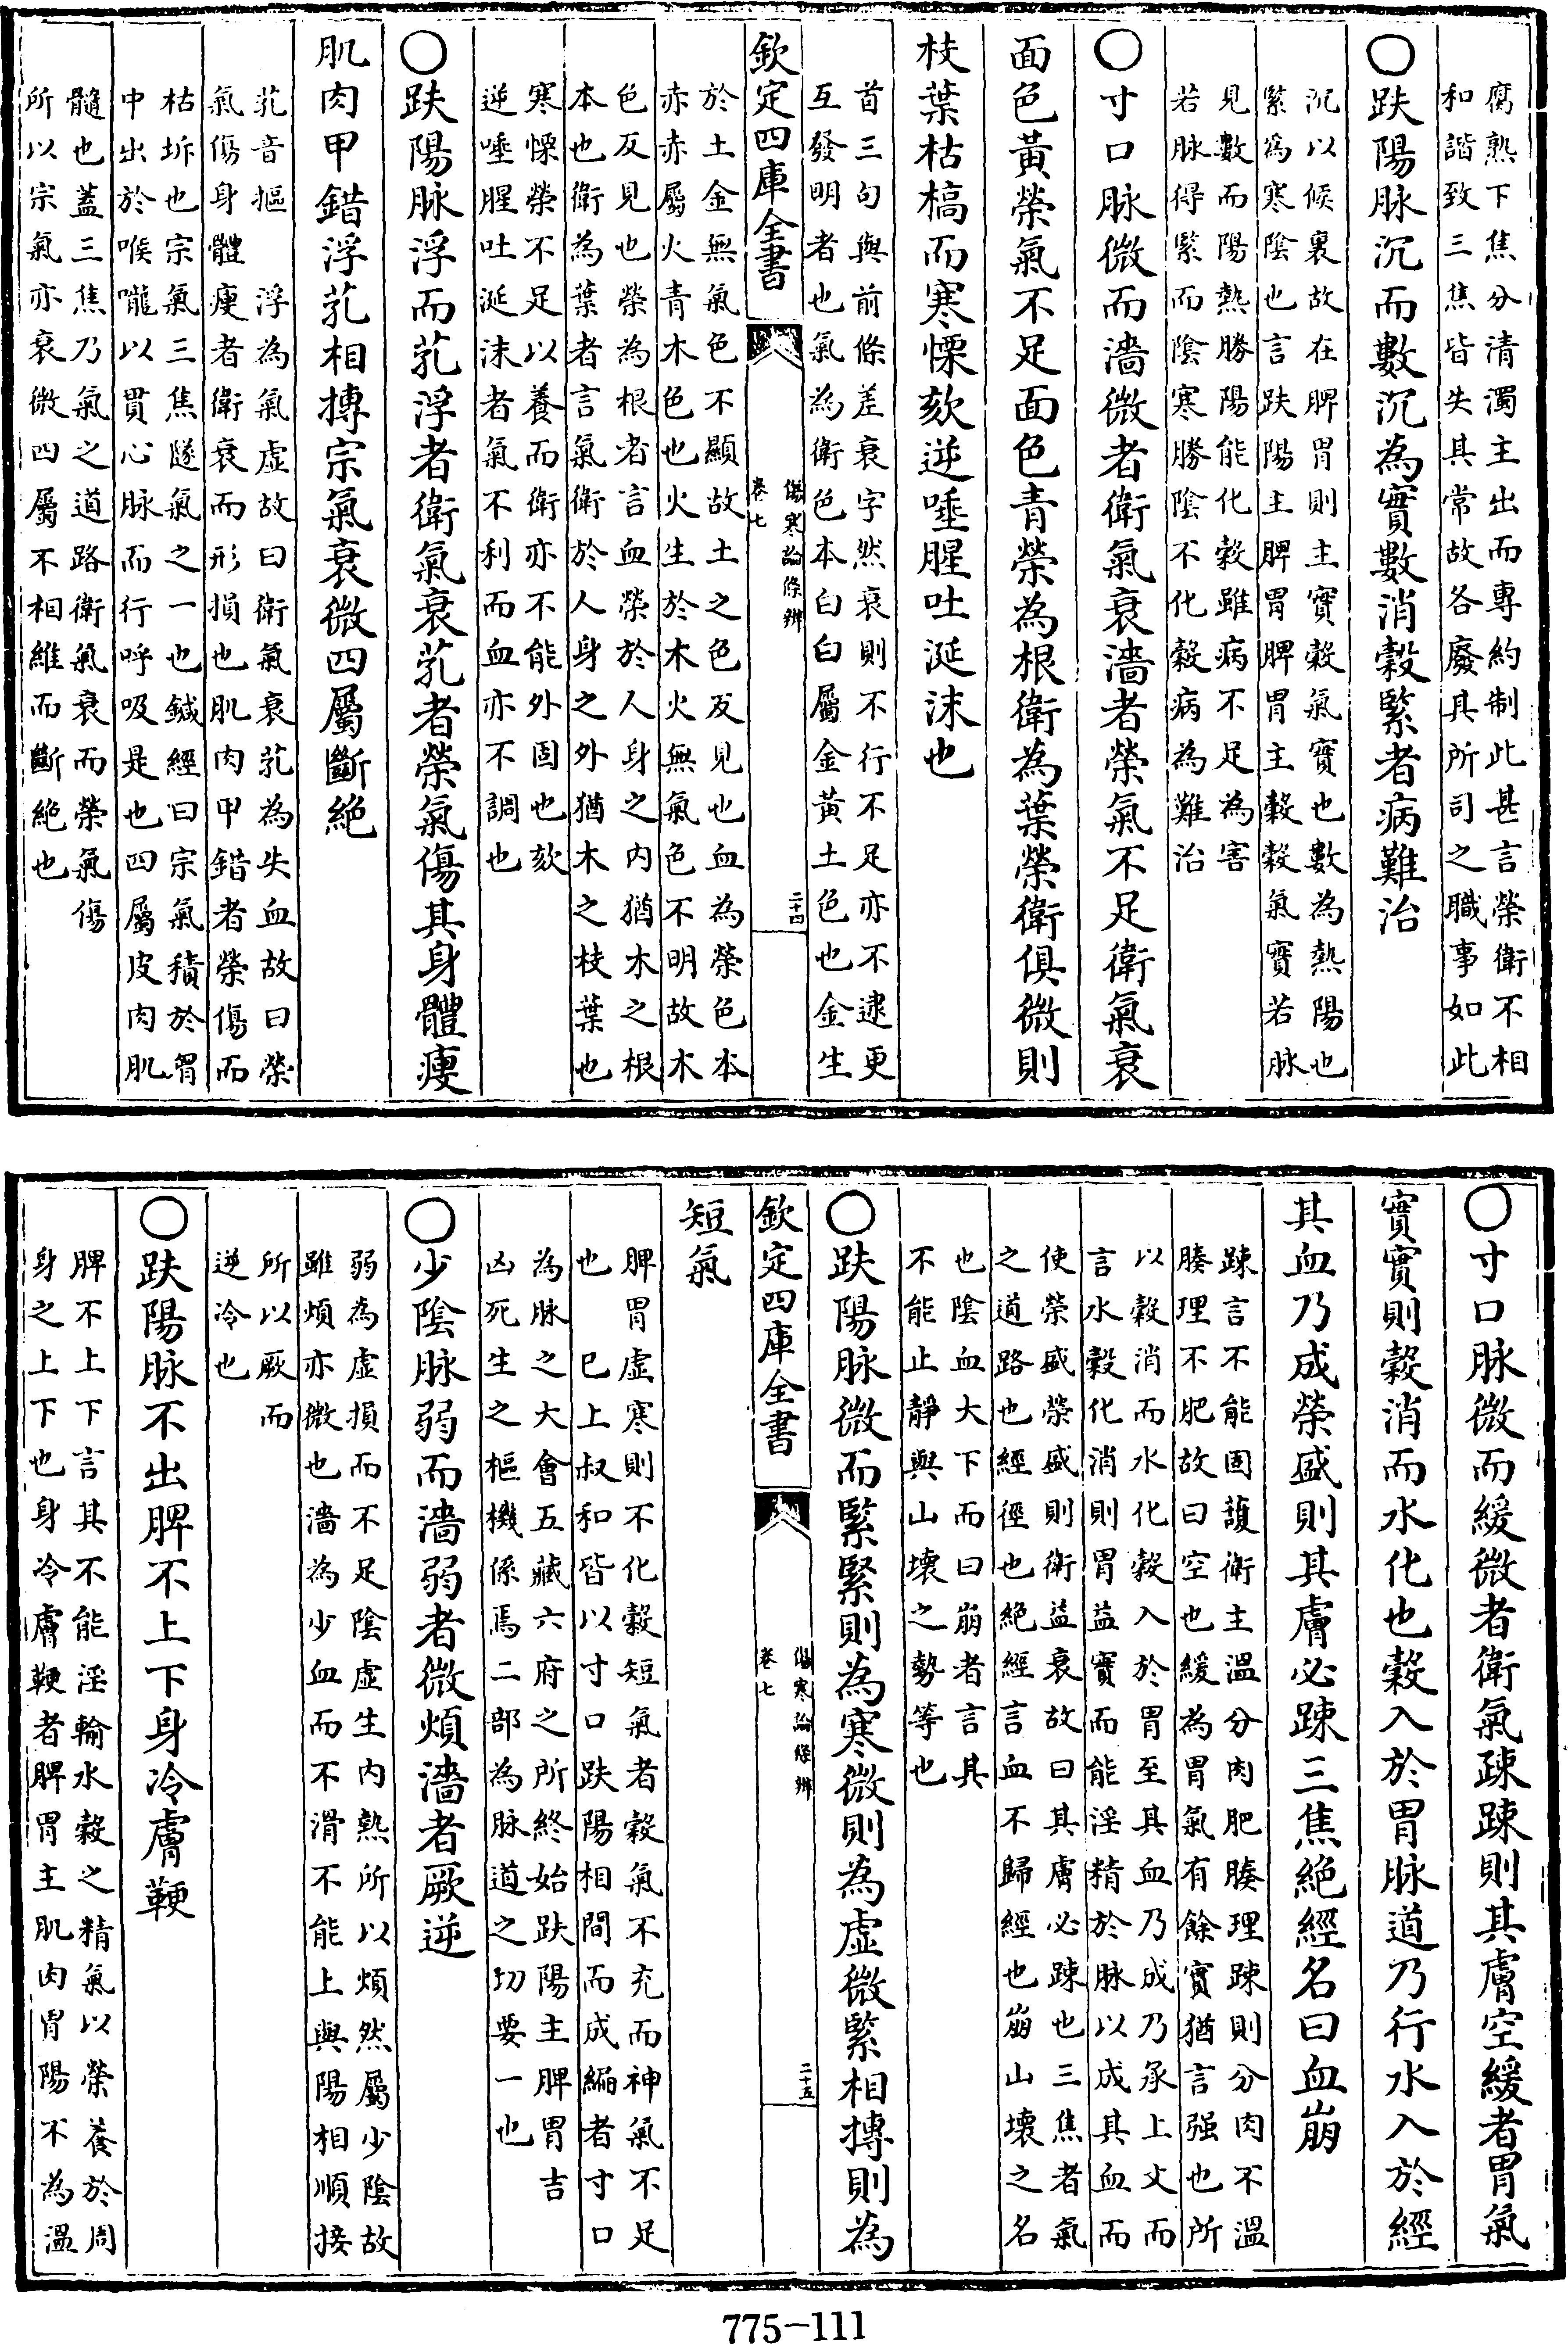 腐熟下焦分清濁主出而專約制此甚言榮衛不相
和諧致三焦皆失其常故各廢其所司之職事如此
○趺陽脉沉而數沉為實數消糓緊者病難治
沉以候裏故在脾胃則主實糓氣實也數為熱陽也
緊為寒陰也言趺陽主脾胃脾胃主糓糓氣實若脉
見數而陽熱勝陽能化糓雖病不足為害
若脉得緊而陰寒勝陰不化糓病為難治
○寸口脉微而濇微者衛氣衰濇者榮氣不足衛氣衰
面色黃榮氣不足面色青榮為根衛為葉榮衛俱微則
枝葉枯槁而寒慄欬逆唾腥吐涎沫也
首三句與前條差衰字然衰則不行不足亦不逮更
互發明者也氣為衛色本白白屬金黃土色也金生
欽定四庫全書
傷寒論條辨
卷七
二十四
於土金無氣色不顯故土之色反見也血為榮色本
赤赤屬火青木色也火生於木火無氣色不明故木
色反見也榮為根者言血榮於人身之內猶木之根
本也衛為葉者言氣衛於人身之外猶木之枝葉也
寒慄榮不足以養而衛亦不能外固也欬
逆唾腥吐涎沫者氣不利而血亦不調也
○趺陽脉浮而芤浮者衛氣衰芤者榮氣傷其身體瘦
肌肉甲錯浮芤相摶宗氣衰微四屬斷絶
芤音摳　浮為氣虛故曰衛氣衰芤為失血故曰榮
氣傷身體瘦者衛衰而形損也肌肉甲錯者榮傷而
枯坼也宗氣三焦隧氣之一也鍼經曰宗氣積於胷
中出於喉嚨以貫心脉而行呼吸是也四屬皮肉肌
髓也蓋三焦乃氣之道路衛氣衰而榮氣傷
所以宗氣亦衰微四屬不相維而斷絶也
○寸口脉微而緩微者衛氣疎疎則其膚空緩者胃氣
實實則糓消而水化也糓入於胃脉道乃行水入於經
其血乃成榮盛則其膚必疎三焦絶經名曰血崩
疎言不能固䕶衛主溫分肉肥腠理疎則分肉不溫
腠理不肥故曰空也緩為胃氣有餘實猶言强也所
以糓消而水化糓入於胃至其血乃成乃承上文而
言水糓化消則胃益實而能淫精於脉以成其血而
使榮盛榮盛則衛益衰故曰其膚必疎也三焦者氣
之道路也經徑也絶經言血不歸經也崩山壞之名
也陰血大下而曰崩者言其
不能止靜與山壞之勢等也
○趺陽脉微而緊緊則為寒微則為虛微緊相摶則為
欽定四庫全書
傷寒論條辨
卷七
二十五
短氣
脾胃虛寒則不化糓短氣者糓氣不充而神氣不足
也　已上叔和皆以寸口趺陽相間而成編者寸口
為脉之大會五藏六府之所終始趺陽主脾胃吉
凶死生之樞機係焉二部為脉道之切要一也
○少陰脉弱而濇弱者微煩濇者厥逆
弱為虛損而不足陰虛生內熱所以煩然屬少陰故
雖煩亦微也濇為少血而不滑不能上與陽相順接
所以厥而
逆冷也
○趺陽脉不出脾不上下身冷膚鞕
脾不上下言其不能淫輪水糓之精氣以榮養於周
身之上下也身冷膚鞕者脾胃主肌肉胃陽不為溫
775-111